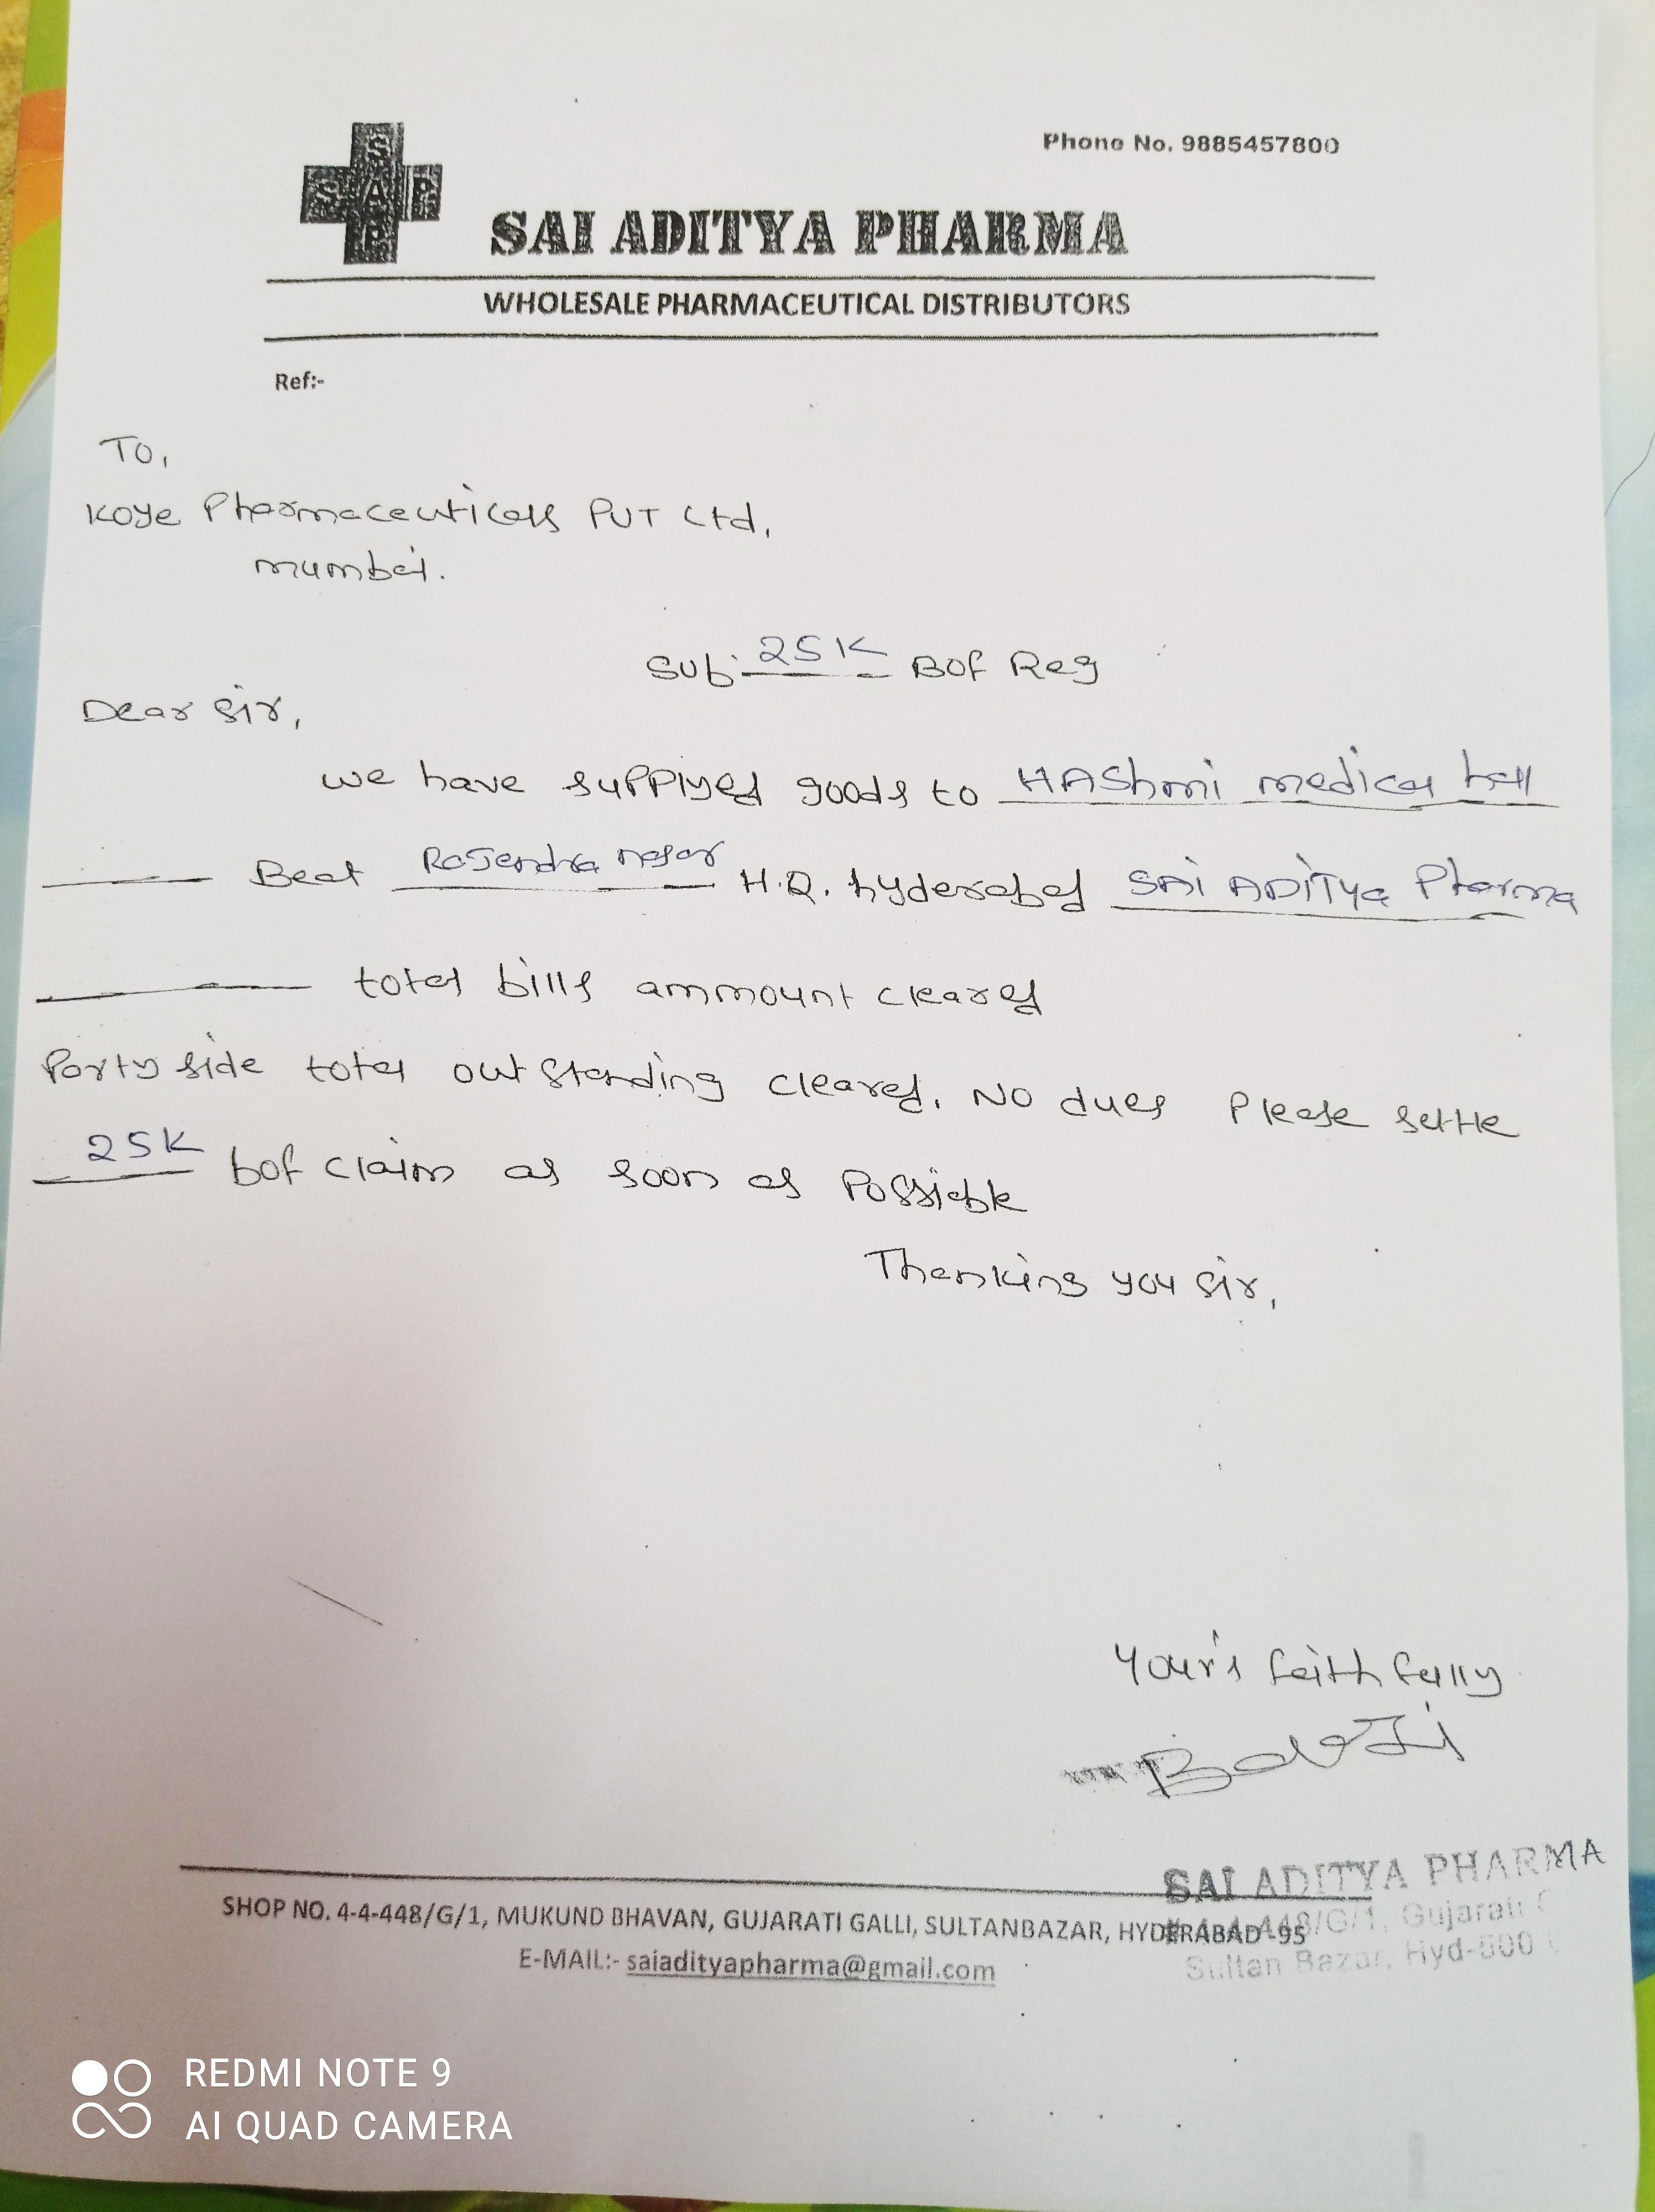 Phone No. 9885457800
S
SAP
P
SAI ADITYA PHARMA
WHOLESALE PHARMACEUTICAL DISTRIBUTORS
Ref:-
To,
Koye Pharmaceuticals PVT Ltd,
mumbai.
Sub: 25K Bof Reg
Dear Sir,
we have supplyed goods to HAShmi medical hall
Beat Rajendra nagar H.Q. hyderabad SAi ADiTya Pharma
total bills ammount cleared
Party side total out standing cleared. No dues Please settle
25K bof claim as soon as Possiable
Thanking you sir,
Your's faith fully
SAI ADITYA PHARMA
SHOP NO. 4-4-448/G/1, MUKUND BHAVAN, GUJARATI GALLI, SULTANBAZAR, HYDERABAD -95
# 4-4-448/G/1, Gujarati
E-MAIL:- saiadityapharma@gmail.com
Sultan Bazar, Hyd-500
REDMI NOTE 9
AI QUAD CAMERA